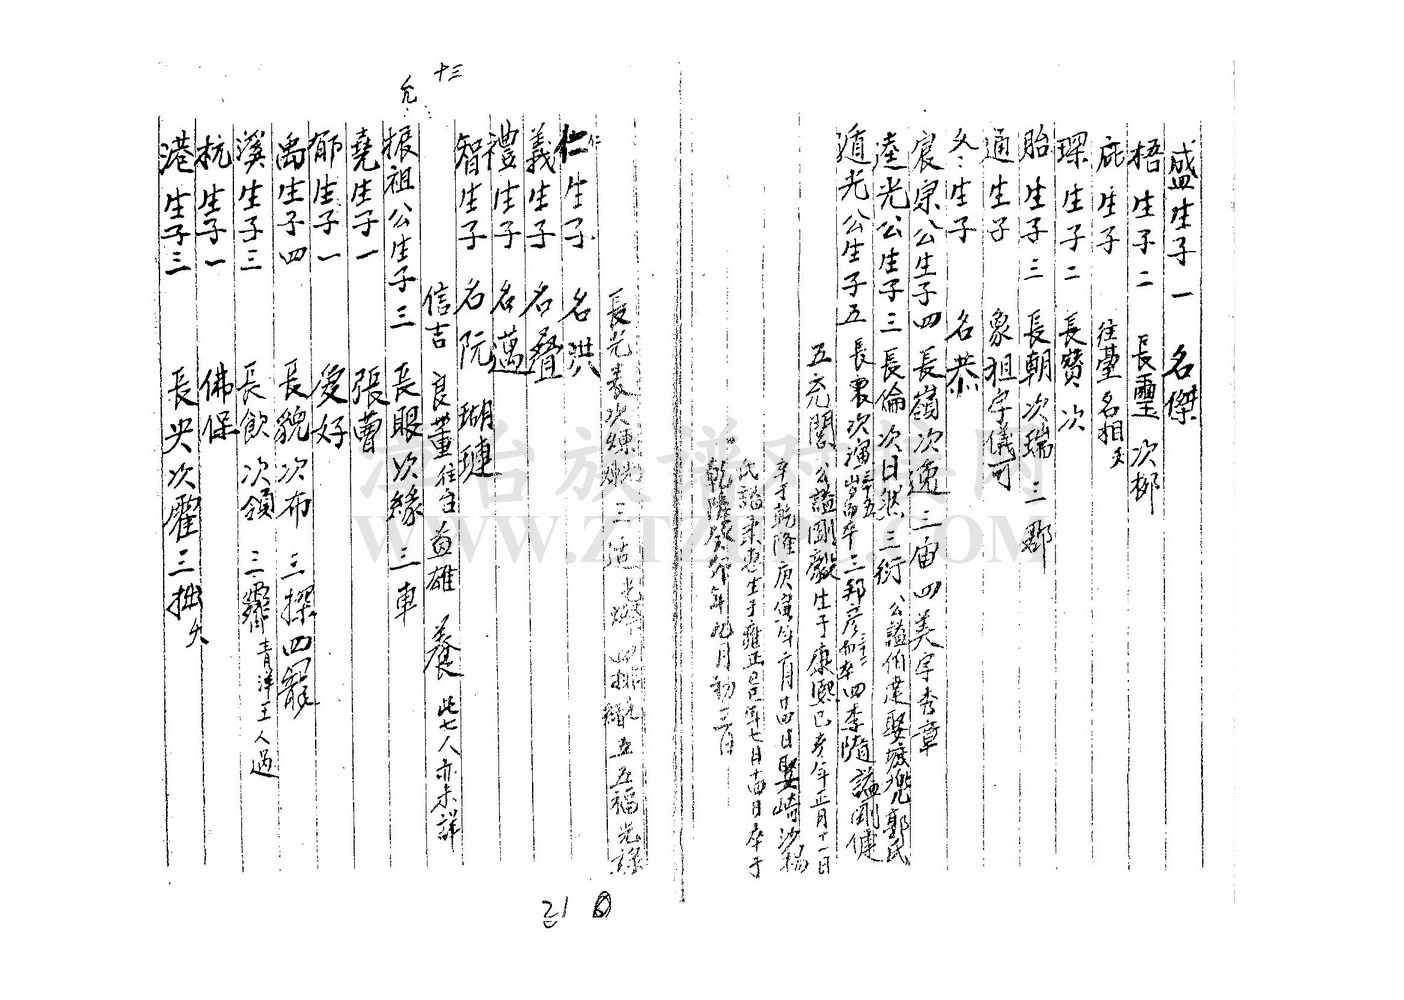 盛生子一 名傑
梧生子二 長璽 次梛
庇生子 往臺 名相
琛生子二 長贊 次
貽生子三 長朝 次瑞 三郡
通生子 象狙字儀可
久生子 名恭
宸宗公生子四 長嶺 次逸 三宙 四美字秀章
逵光公生子三 長倫 次日然 三衍 公諡伯達娶 郭氏
遁光公生子五 長震 次漁 三十五歲而卒 三邦彦 而卒 四李隨諡剛健
五充閭 公諡剛毅生于康熙己亥年正月十一日
卒于乾隆庚寅年六月廿四日娶崎沙楊
氏諡柔惠生于雍正 年七月十四日卒于
乾隆癸卯年九月初三日
長光表 次煉 三造光 四 五五福光祿
仁生子 名洪
義生子 名疊
禮生子 名邁
智生子 名阮 瑚璉
信吉 良董住台 首雄 養 此七人亦未詳
振祖公生子三 長眼 次緣 三車
堯生子一 張曹
郁生子一 愛好
禹生子四 長貌 次布 三探 四罷
溪生子三 長飲 次領 三霽 青洋王人過
杭生子一 佛保
港生子三 長央 次霍 三拙
允
十三
21
津台族谱对接网
WWW.ZTZUPU.COM